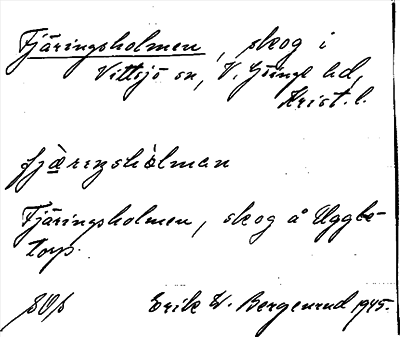 Fjäringsholmen, skog i
Vittsjö sn, V. Göinge hd,
Krist. l.
fjæ̀rıŋshòlman
Fjäringsholmen, skog å Uggle-
torp.
Erik W. Bergenrud 1945.